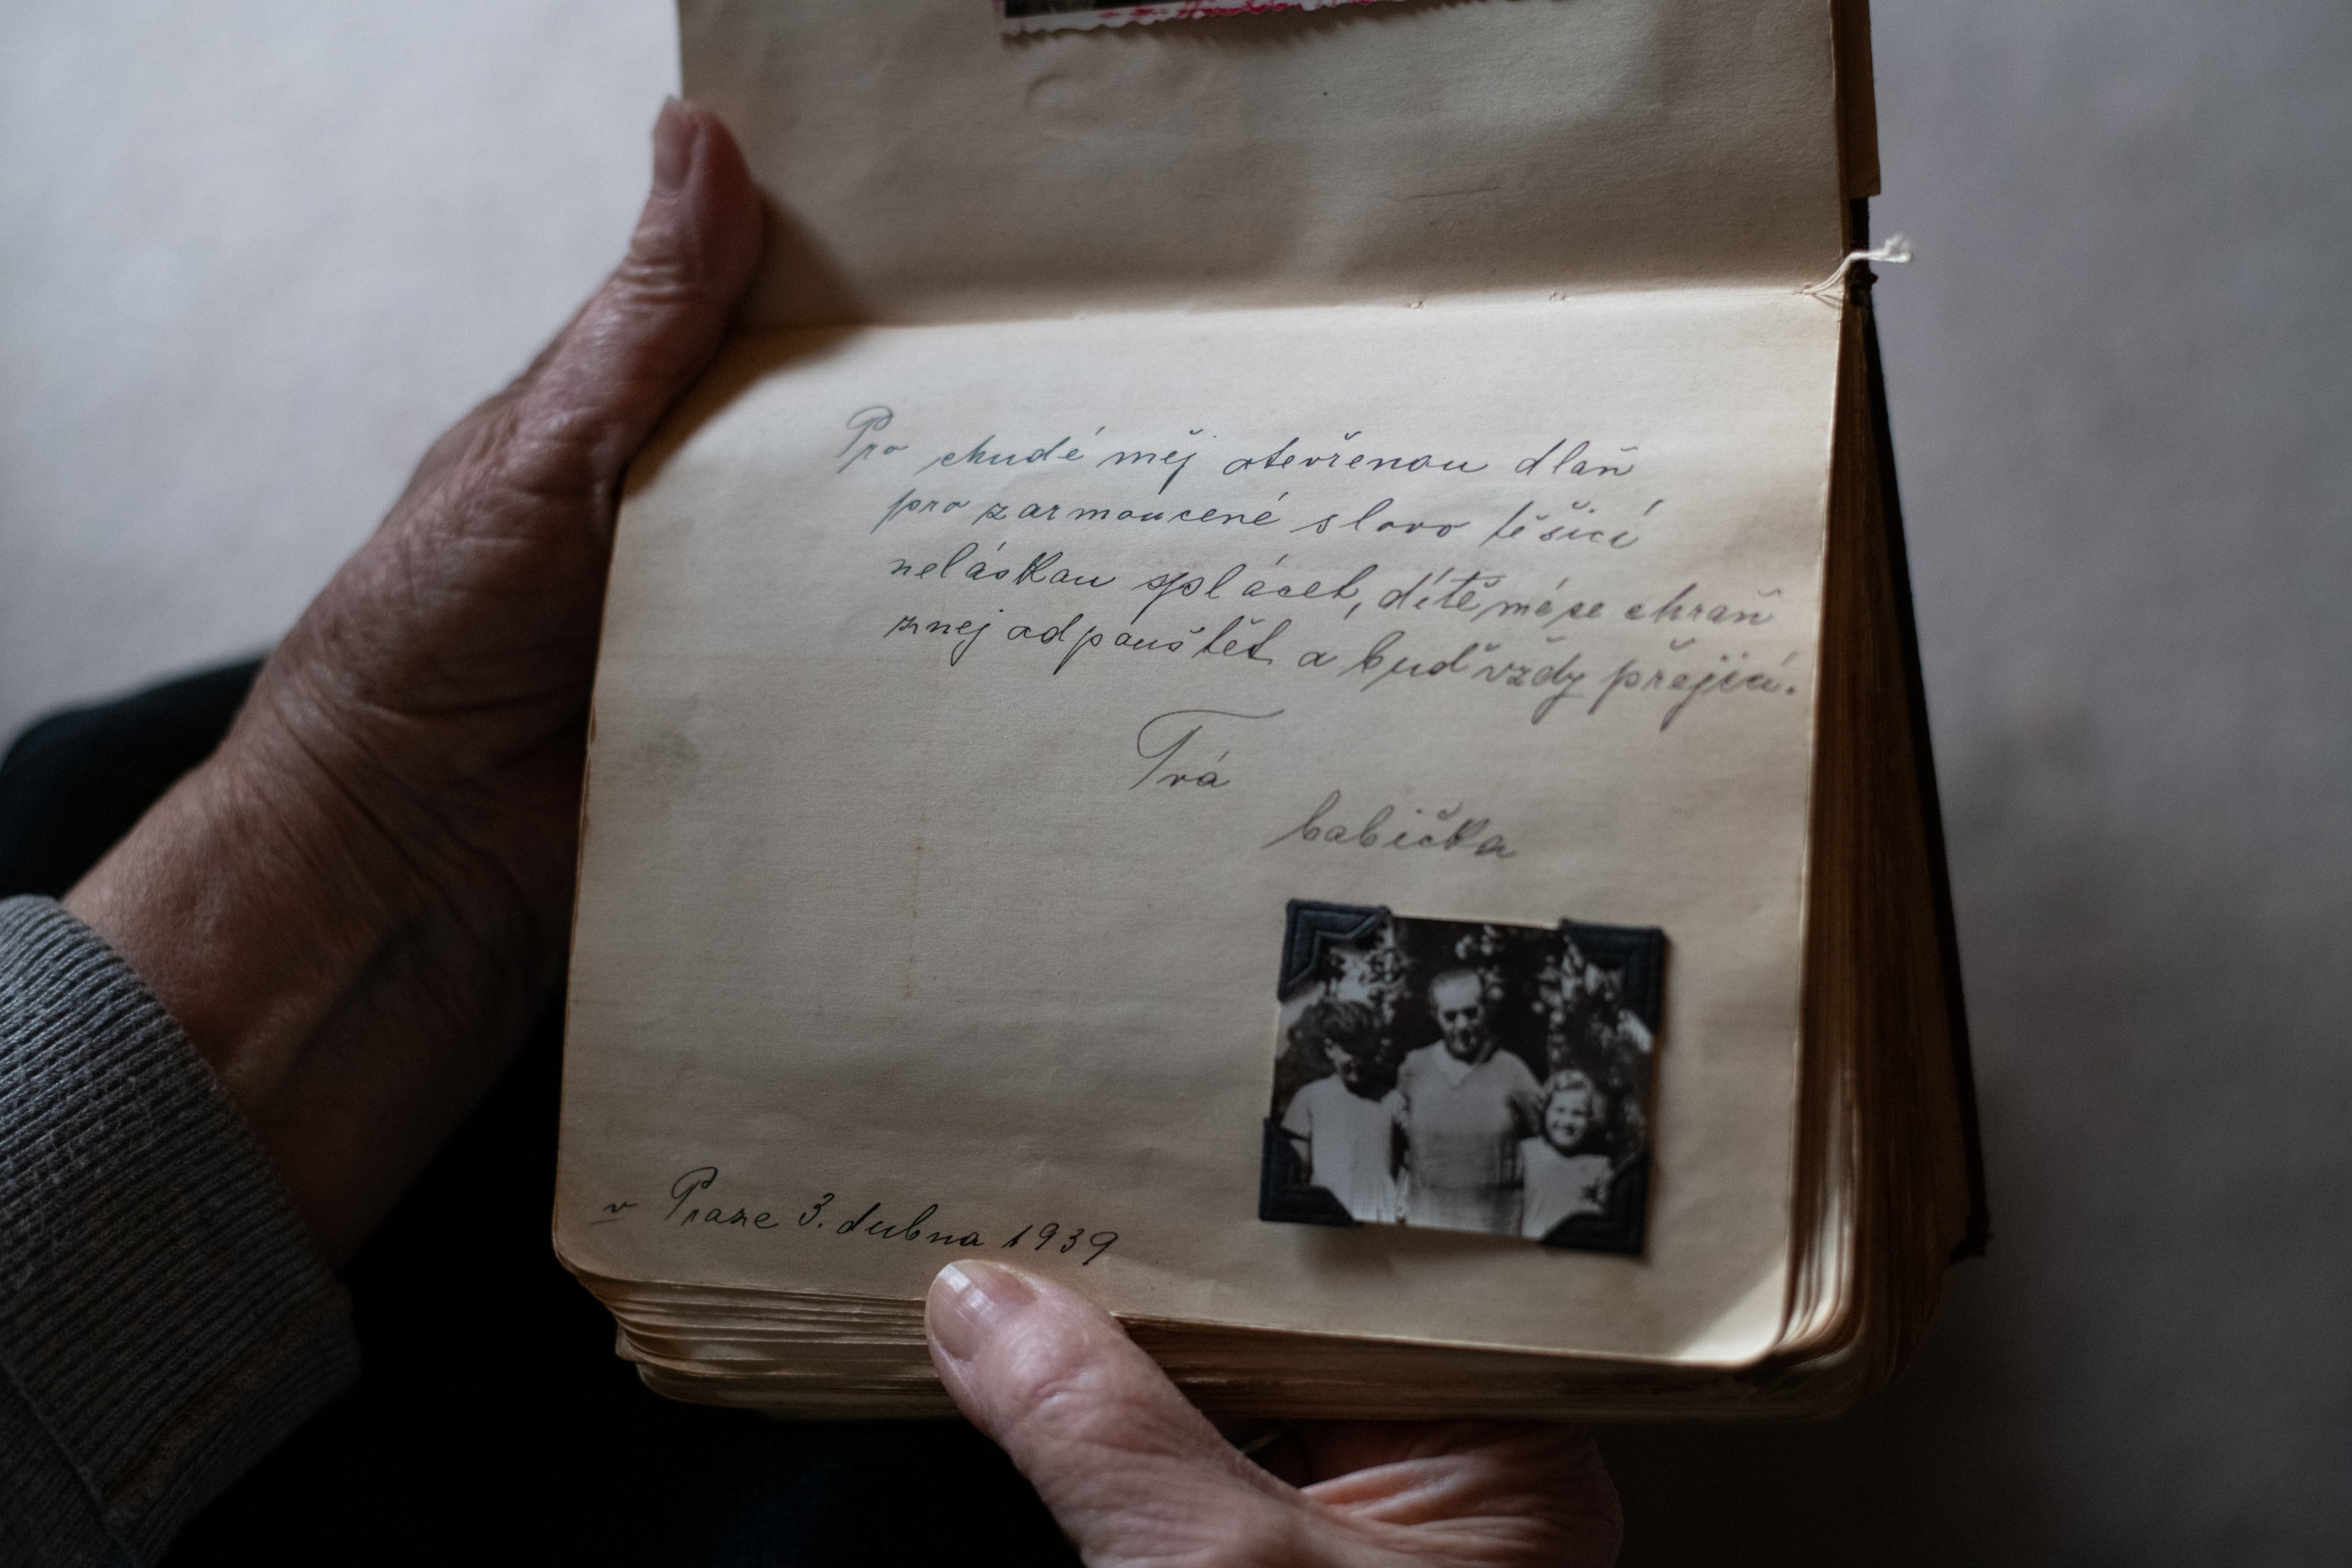 Pro chudé měj otevřenou dlaň
pro zarmoucené slovo těšící
neláskou splácet, dítě mé se chraň
znej odpouštět a buď vždy přející.
Tvá
babička
v Praze 3. dubna 1939